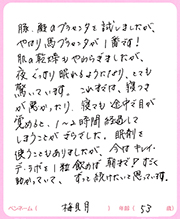 豚、鮭のプラセンタを試しましたが、
やはり馬プラセンタが1番です!
肌の乾燥もやわらぎましたが、
夜ぐっすり眠れるようになり、とても
驚いています。これまでは、寝つき
が悪かったり、寝ても途中で目が
覚めると、1〜2時間経過して
しまうことがざらでした。眠剤を
使うこともありましたが、今はキレイ・
デ・ラボを1粒飲めば朝までグッスリ
助かっていて、ずっと続けたいと思っています。
ペンネーム( 梅見月 )年齢( 53 歳)